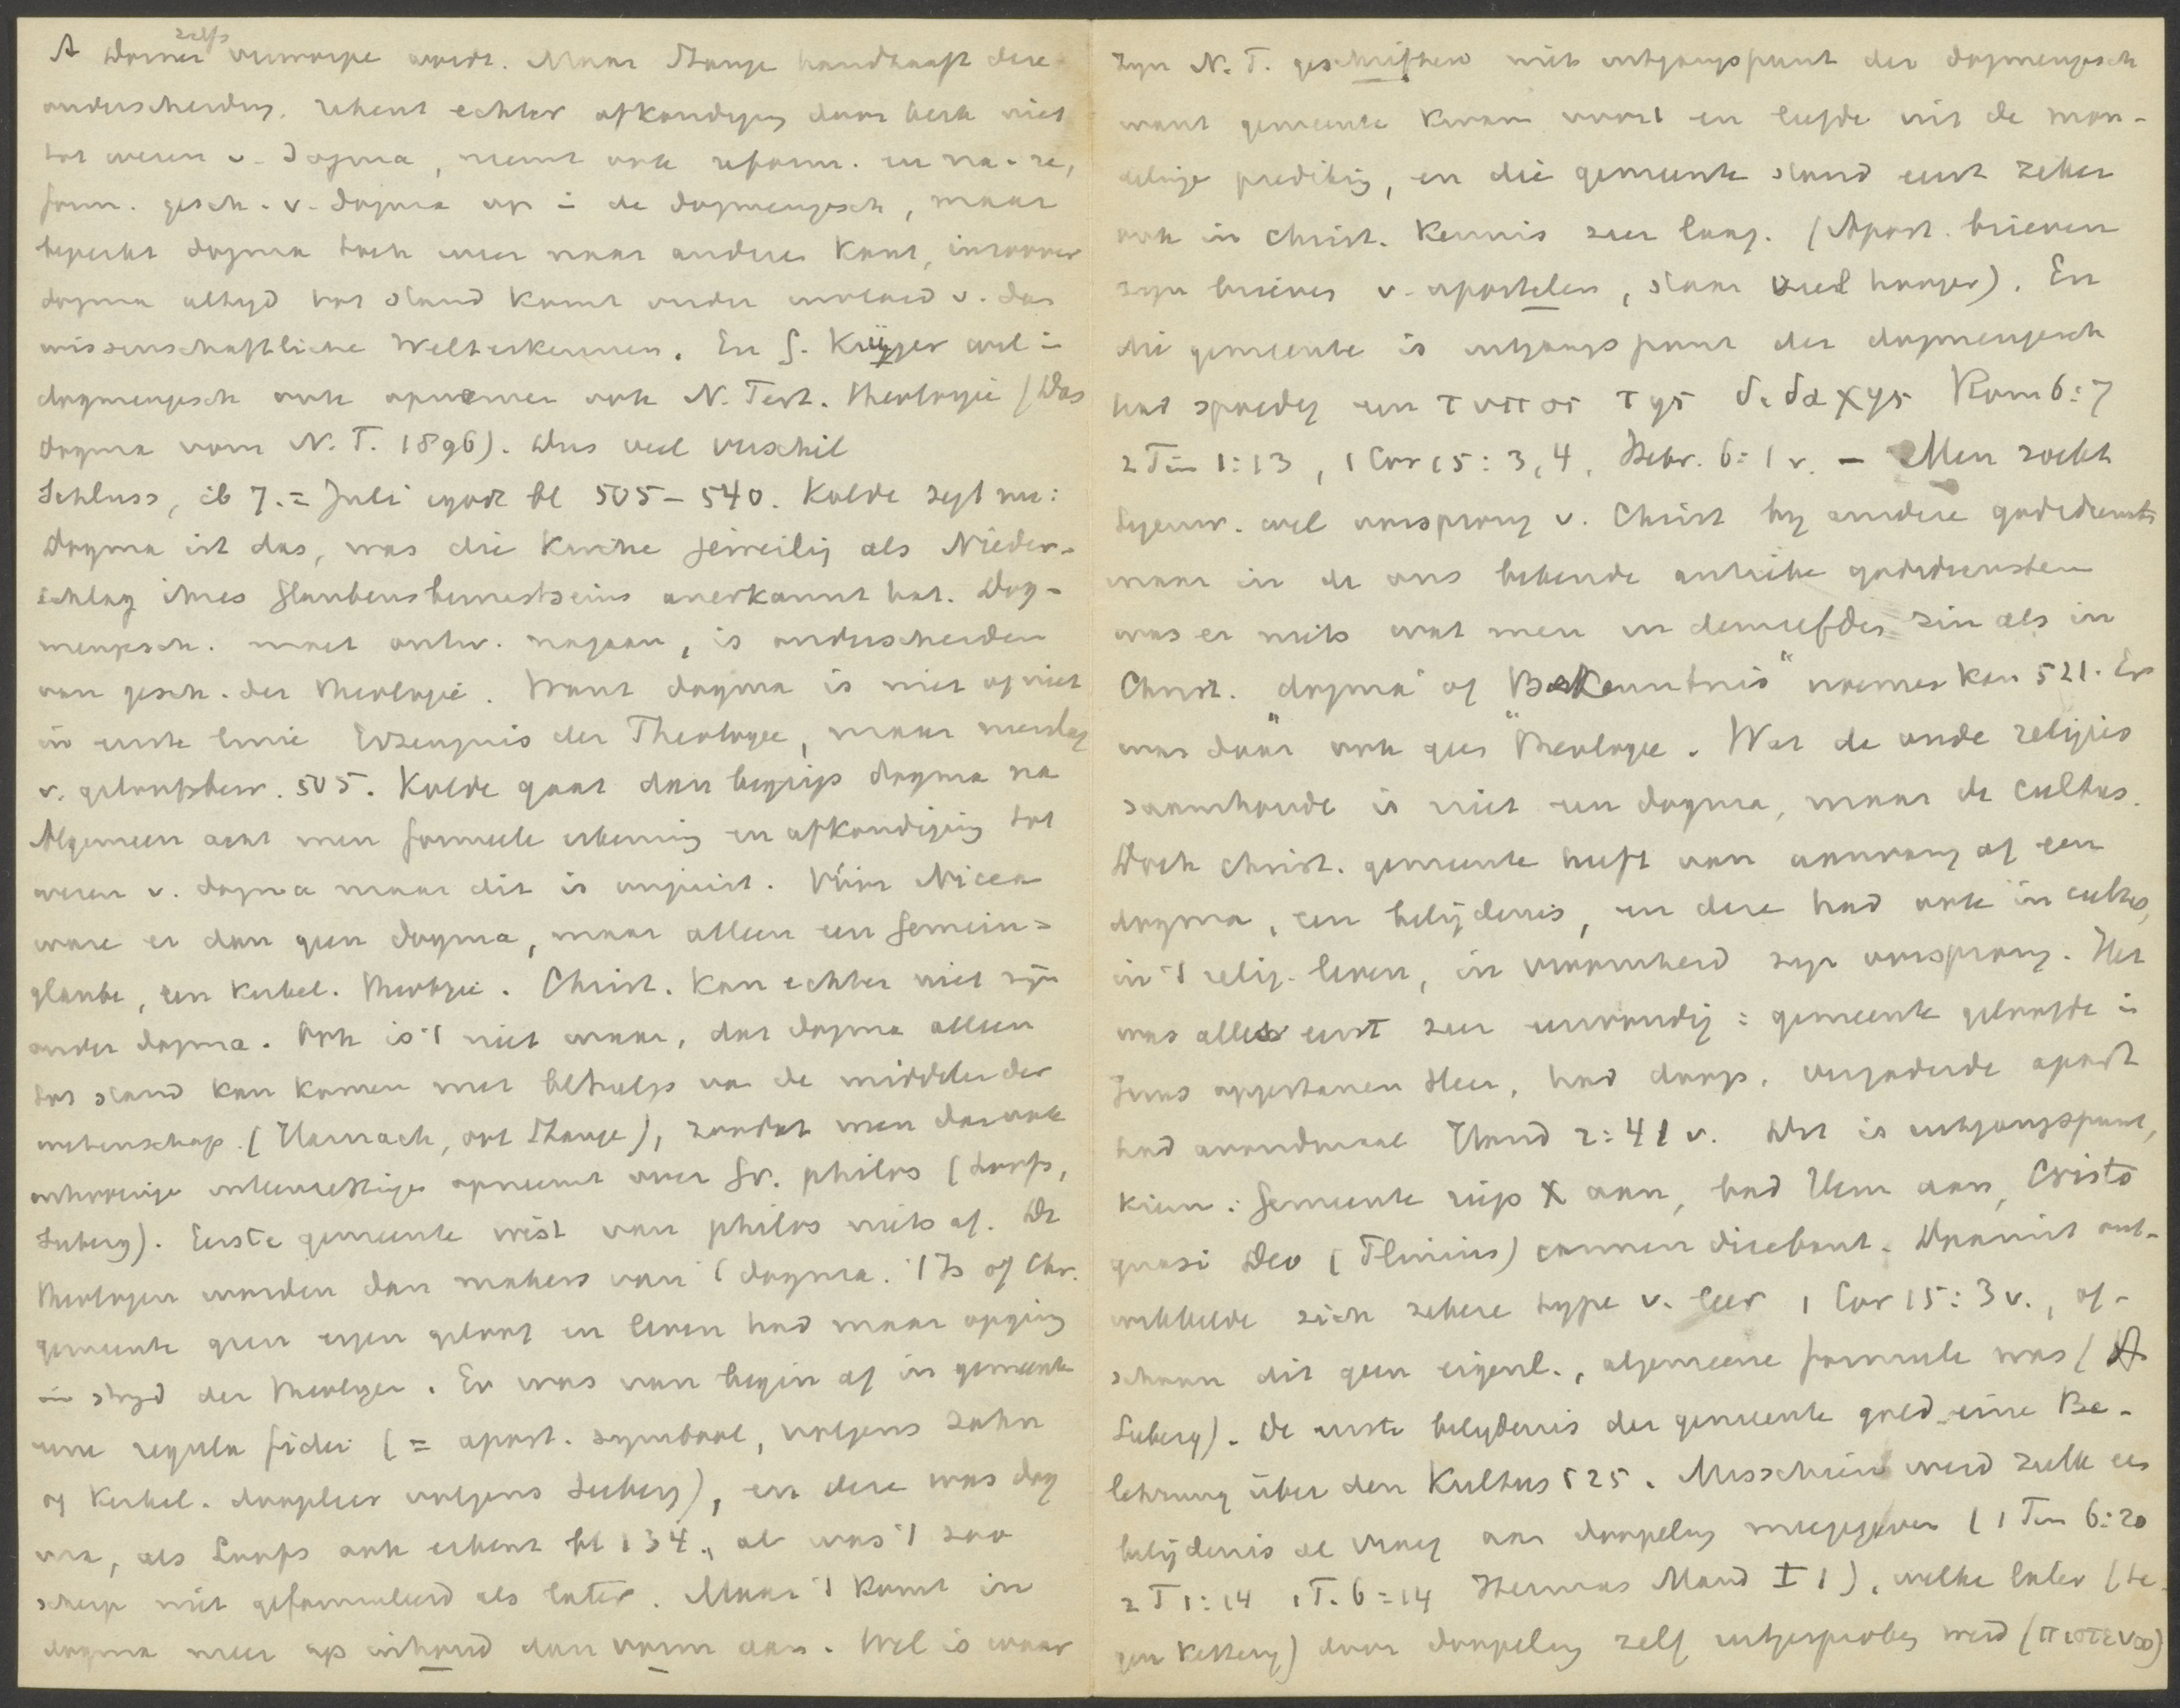 zelfs
A Dorner verworpe wordt. Maar Stange handhaaft deze
onderscheiding. rekent echter afkondiging door kerk niet
tot wezen v. dogma, neemt ook reform. en na-re,
form. gesch. v. dogma op in de dogmengesch, maar
beperkt dogma toch weer naar andere kant, inzoover
dogma altyd tot stand komt onder invloed v. das
wissenschaftliche Welterkennen. En G. Krüger wil in
dogmengesch ook opnemen ook N. Test. theologie (Das
Dogma vom N. T. 1896). Dus veel verschil
Schluss, ib 7.= Juli 1908 bl 505-540. Kolde zegt nu:
Dogma ist das, was die Kirche jeweilig als Nieder-
schlag ihres Glaubensbewustseins anerkannt hat. Dog-
mengesch. moet ontw. nagaan, is onderscheiden
van gesch. der theologie. Want dogma is niet of niet
in erste linie Erzeugnis der Theologie, maar neerslag
v. geloofsbew. 505. Kolde gaat dan begrip dogma na
Algemeen acht men formeele erkenning en afkondiging tot
wezen v. dogma maar dit is onjuist. Vóór Nicea
ware er dan geen dogma, maar alleen een Gemein=
glaube, een kerkel. theologie. Christ. kan echter niet zijn
zonder dogma. Ook is 't niet waar, dat dogma alleen
tot stand kan komen met behulp van de middelen der
wetenschap (Harnack, ook Stange), zoodat men daarook
uitvoerige uiteenzettinge opneemt over Gr. philos (Loofs,
Seeberg). Eerste gemeente wist van philos niets af. De
theologen worden dan makers van 't dogma. 't Is of Chr.
gemeente geen eigen geloof en leven had maar opging
in stryd der theologen. Er was van begin af in gemeente
eene regula fidei (= apost. symbool, volgens Zahn
of kerkel. doopleer volgens Seeberg), en deze was dog
ma, als Loofs ook erkent bl 134., al was 't zoo
scherp niet geformuleerd als later. Maar 't komt in
dogma meer op inhoud dan vorm aan. Wel is waar
zyn N. T. geschriften niet uitgangspunt der dogmengesch
want gemeente kwam voort en leefde uit de mon-
delinge prediking, en die gemeente stond eerst zeker
ook in Christ. kennis zeer laag. (Apost. brieven
zyn brieves v. apostelen, staan veel hooger). En
die gemeente is uitgangspunt der dogmengesch
had spoedig een τυπος της διδαχης Rom 6:7
2 Tim 1:13, 1 Cor 15:3,4, Hebr. 6:1 v. - Men zoekt
tegenw. wel oorsprong v. Christ by andere godsdienst
maar in de ons bekende antieke godsdiensten
was er niets wat men in denzelfden zin als in
Christ. "dogma" of "Bekenntnis" noemen kan 521. Er
was daar ook geen "theologie". Wat de oude religies
saamhoude is niet een dogma, maar de cultus.
Doch Christ. gemeente heeft van aanvang af een
dogma, een belijdenis, en deze had ook in cultus,
in 't relig. leven, in vroomheid zyn oorsprong. Het
was alles eerst zeer eenvoudig: gemeente geloofde in
Jezus opgestanen Heer, had doop, vergaderde apart
had avondmaal Hand 2:41 v. Dit is uitgangspunt,
kiem: Gemeente riep X aan, bad Hem aan, Cristo
quasi Deo (Plinius) carmen dicebant. Daaruit ont-
wikkelde zich zekere type v. leer 1 Cor 15:3 v., of-
schoon dit geen eigenl., algemeene formule was (A
Seeberg). De eerste belydenis der gemeente gold eine Be-
lehrung über den Kultus 525. Misschien werd zulk een
belijdenis al vroeg aan doopeling meegegeven (1 Tim 6:20
2 T 1:14 1 T. 6:14 Hermas Mand I 1), welke later (te-
gen kettery) door doopeling zelf uitgesproken werd (πιστευω)